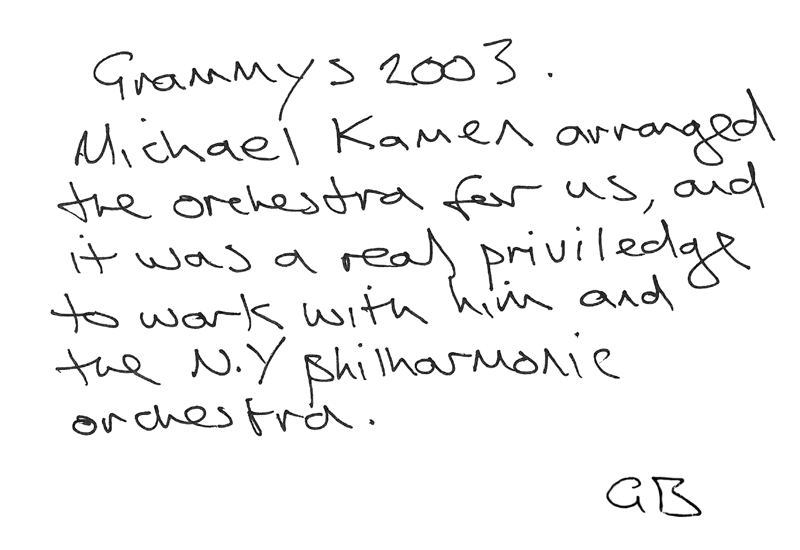 Grammys 2003.
Michael Kamen arranged
the orchestra for us, and
it was a real priviledge
to work with him and
the N.Y philharmonic
orchestra.
GB